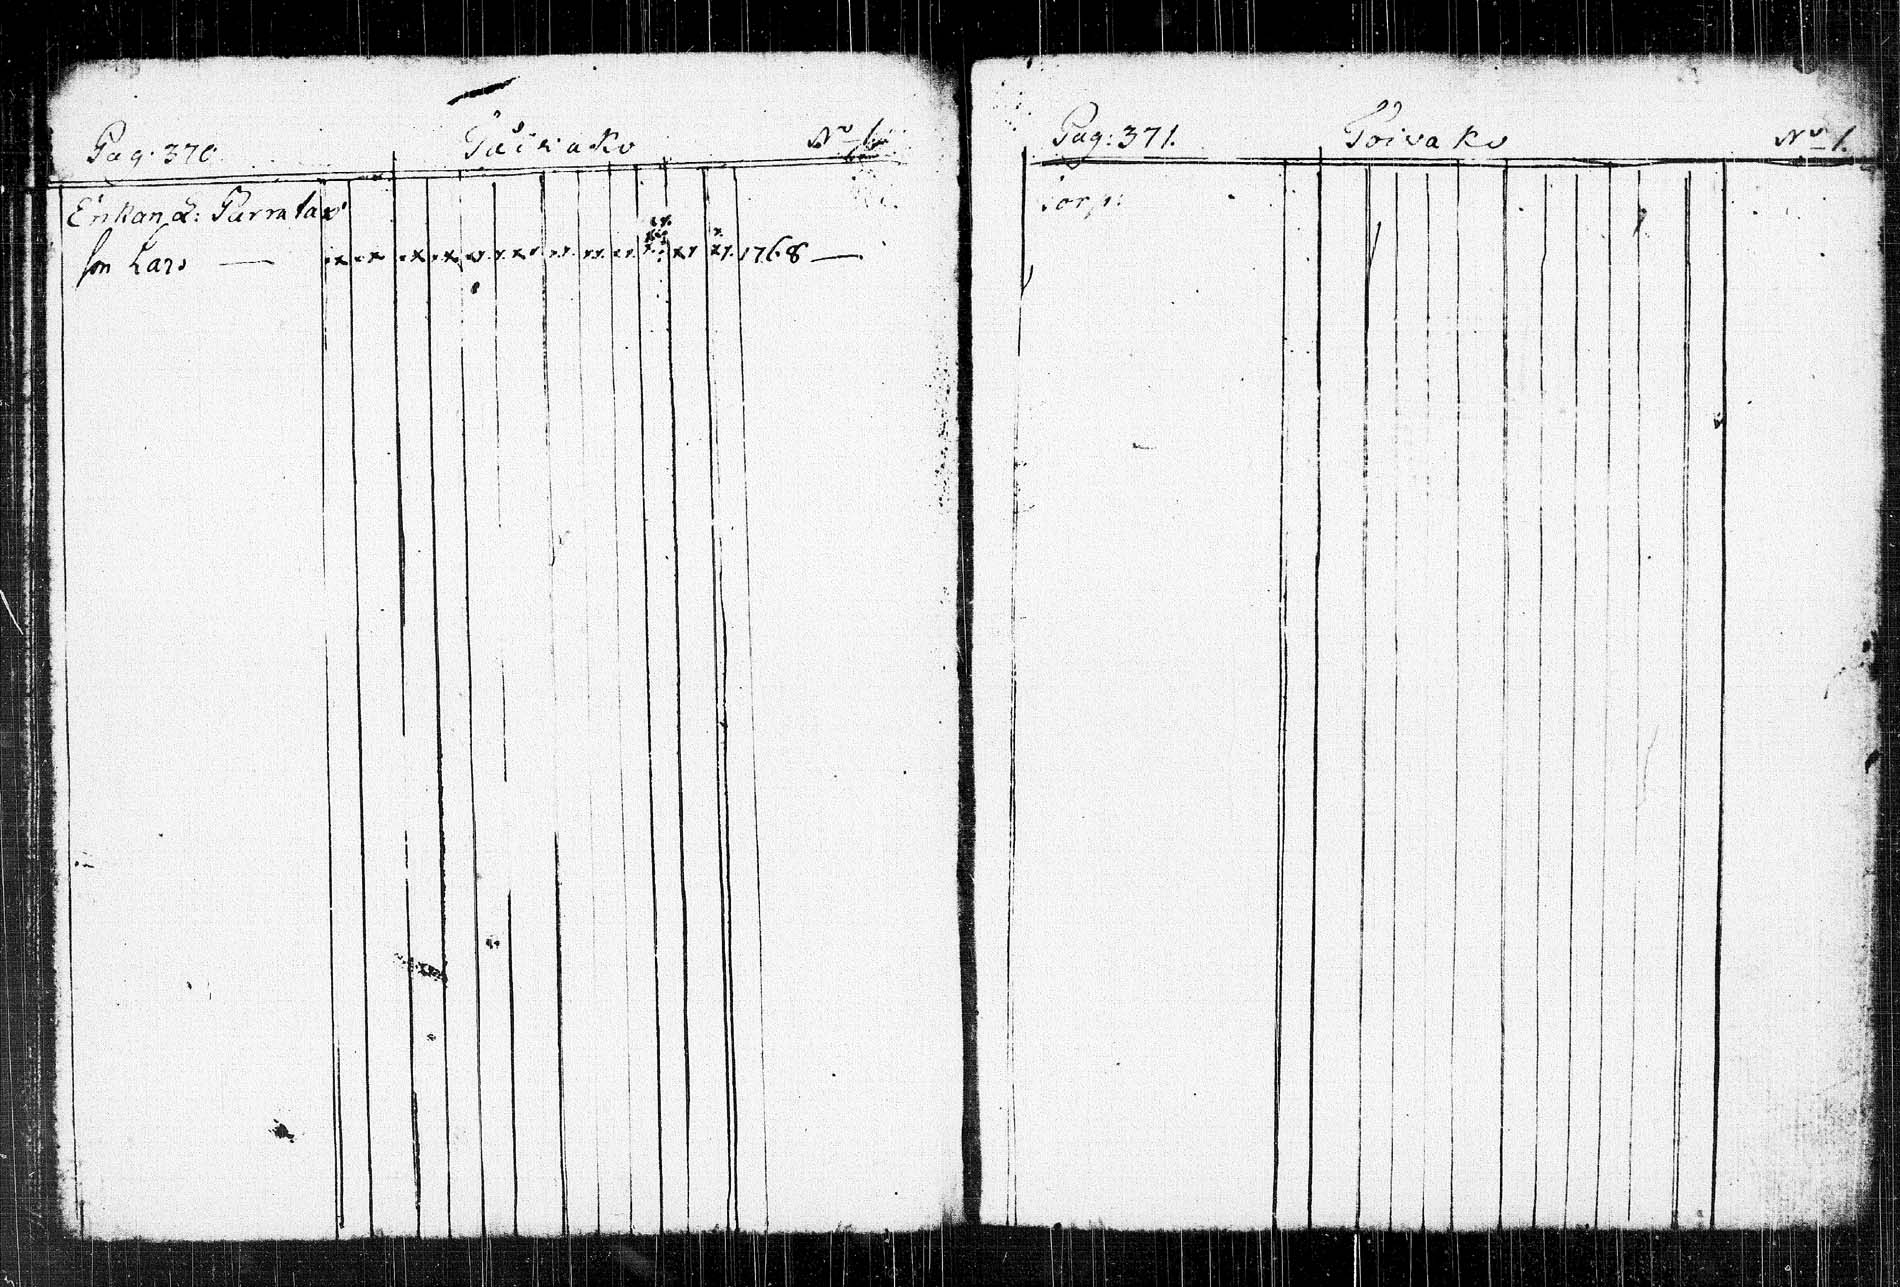 Pag. 370. Toivako No 1
Enkan L: Parmtar
son Lars — 1768 —
Pag: 371. Toivako No 1.
Torp: